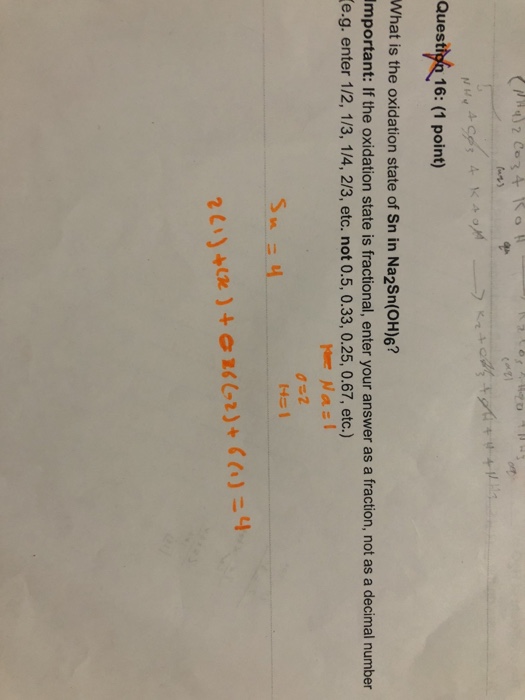 (NH4)2 CO3 + KOH
(aq)
Question 16: (1 point)
What is the oxidation state of Sn in Na2Sn(OH)6?
Important: If the oxidation state is fractional, enter your answer as a fraction, not as a decimal number
(e.g. enter 1/2, 1/3, 1/4, 2/3, etc. not 0.5, 0.33, 0.25, 0.67, etc.)
Na=1
O=2
H=1
Sn = 4
2(1)+(x)+ 6(-2)+6(1)=4